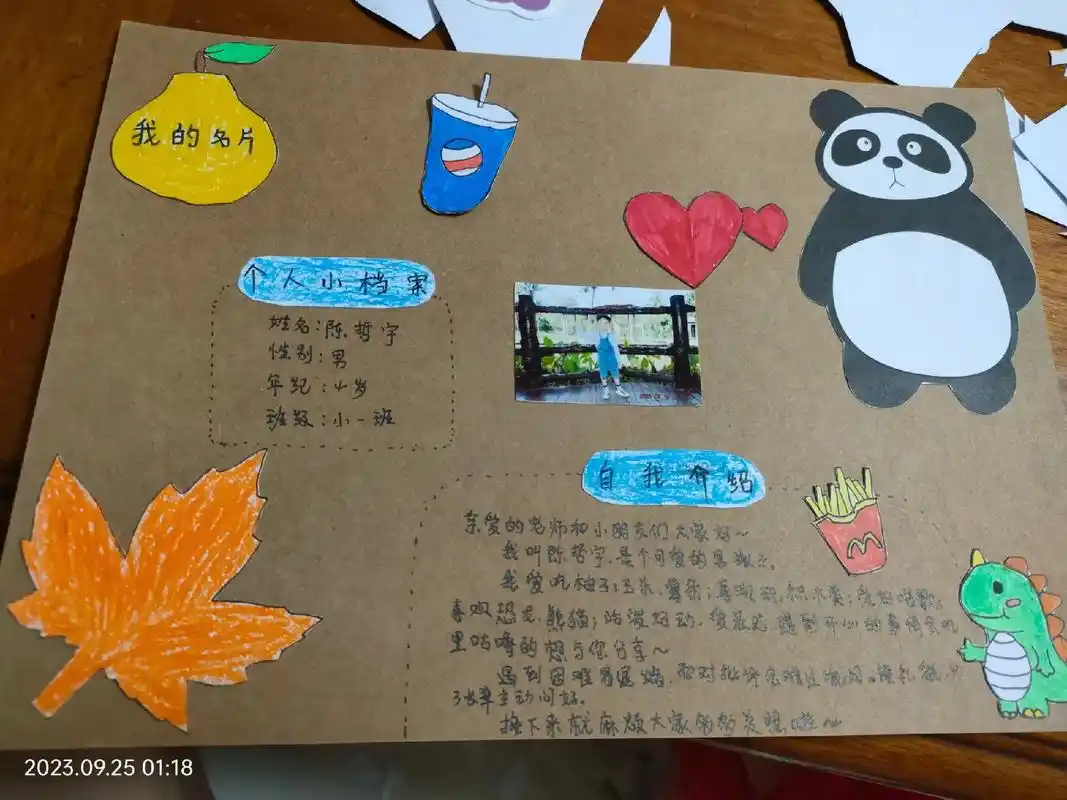 我的名片
个人小档案
姓名：陈哲宇
性别：男
年纪：4岁
班级：小一班
自我介绍
亲爱的老师和小朋友们大家好～
我叫陈哲宇，是个可爱的男孩子。
我爱吃柚子、玉米、薯条；喜欢玩积木类；爱好唱歌，
喜欢恐龙、熊猫；活泼好动，
里咕噜的想与你分享～
遇到困难易退缩，面对批评会
主动问好。
接下来就麻烦大家多多关照啦～
2023.09.25 01:18